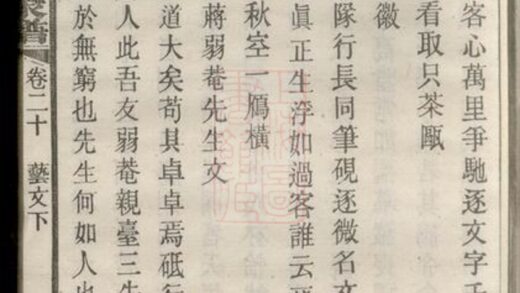 客心萬里爭馳逐文字
看取只茶甌
徽
隊行長同筆硯逐微名文
眞正生浮如過客誰云
秋空一鴈橫
蔣弱菴先生文
道大矣苟具卓卓焉砥行
人此吾友弱菴親臺三生
於無窮也先生何如人也
卷二十
藝文下